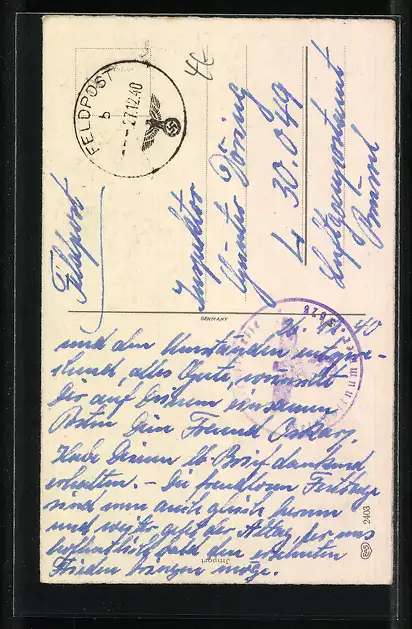 FELDPOST
b
27.12.40
Feldpost
Inspektor
Günter Döring
L 30.049
Luftgaupostamt
Brüssel
GERMANY
26. 12. 40
und den Umständen entspre-
chend, alles Gute, wünscht
Dir auf Deinem einsamen
Posten Dein Freund Oskar.
Habe Deinen lb. Brief dankend
erhalten. – Die freudlosen Festtage
sind nun auch gleich herum
und weiter geht der Alltag, der uns
hoffentlich bald den ersehnten
Frieden bringen möge.
Import
2403